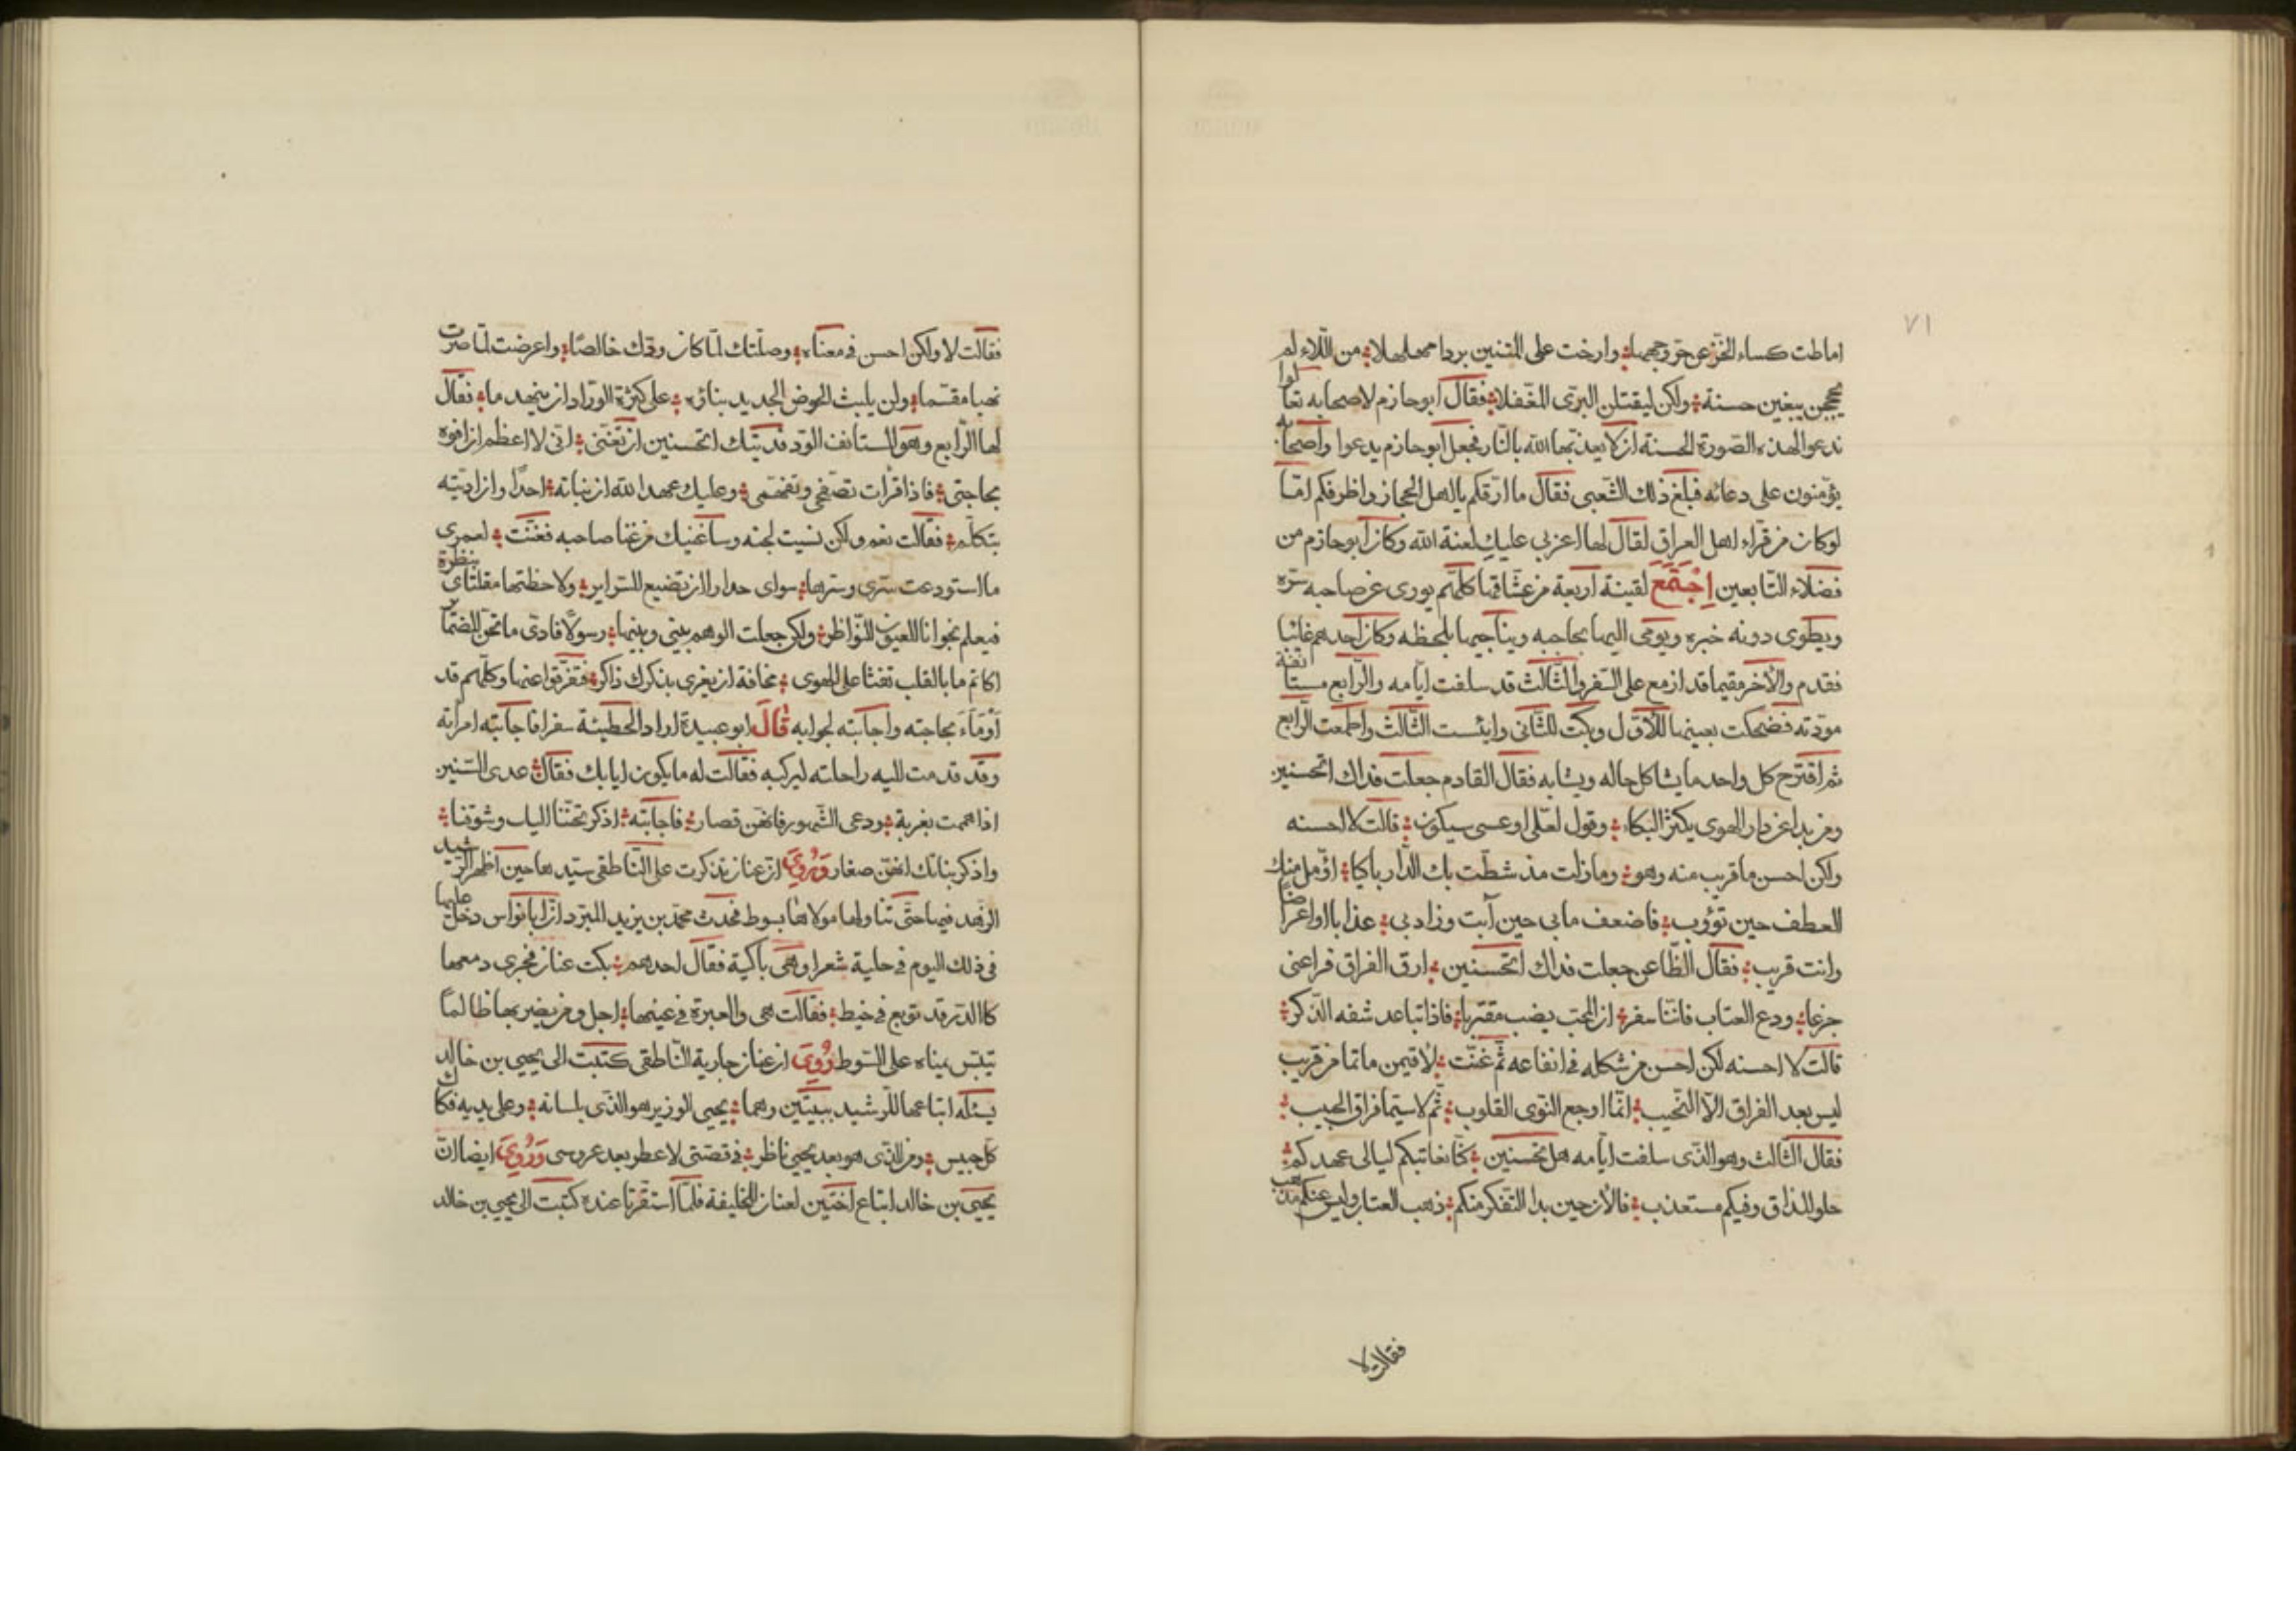 ٧١
اماطت كساء الخز عن حر وجهها وارخت على المتنين بردا مهلهلا من اللاء لم
يحججن يبغين حسنة ولكن ليقتلن البرى المغفلا فقال ابو حازم لاصحابه تعالوا
ندعوا لهذه الصورة الحسنة ان لا يعذبها الله بالنار فجعل ابو حازم يدعوا واصحابه
يؤمنون على دعائه فبلغ ذلك الشعبى فقال ما ارقكم يا اهل الحجاز واظرفكم اما
لو كان من قراء اهل العراق لقال لها اعزبى عليك لعنة الله وكان ابو حازم من
فضلاء التابعين اجتمع لقينة اربعة من عشاقها كلهم يورى عن صاحبه سره
ويطوى دونه خبره ويومى اليها بحاجبه ويناجيها بلحظه وكان احدهم غائبا
فقدم والآخر مقيما قد ازمع على السفر والثالث قد سلفت ايامه والرابع مستانفة
مودته فضحكت بعينها للاول وبكت للثانى وايئست الثالث واطمعت الرابع
ثم اقترح كل واحد ما يشاكل حاله ويشابه فقال القادم جعلت فداك اتحسنين
ومن يدا عن دار الهوى يكثر البكاء وقول لعلى او عسى سيكون قالت لا احسنه
ولكن احسن ما قرب منه وهو وما زلت مذ شطت بك الدار باكيا اؤمل منك
العطف حين تؤوب فاضعف ما بى حين أبت وزاد بى عذابا اواعراضا
وانت قريب فقال الظاعن جعلت فداك اتحسنين ارق الفراق فراعنى
جزعا ودع العتاب فاننا سفر ان المحب يضب مقتربا فاذا تباعد شفه الذكر
قالت لا احسنه لكن احسن من شكله فى ايقاعه ثم غنت لاقيمن ماتما من قريب
ليس بعد الفراق الا النحيب انما اوجع النوى القلوب ثم لا سيما فراق الحبيب
فقال الثالث وهو الذى سلفت ايامه هل تحسنين كنا نعاتبكم ليالى عهدكم
حلو المذاق وفيكم مستعذب فالآن حين بدا التنكر منكم ذهب العتاب وليس عنكم مذهب
فقالت لا
فقالت لا ولكن احسن فى معناه وصلتك لما كان ودك خالصا واعرضت لما صرت
نهبا مقسما ولن يلبث الحوض الجديد بناؤه على كثرة الوراد ان يتهدما فقال
لها الرابع وهو المستانف الود فديتك اتحسنين ان تغنى انى لا اعظم ان افوه
بحاجتى فاذا قرات تصفحى وتفهمى وعليك عهد الله ان نباته احدا وان اديته
بتكلم فقالت نعم ولكن نسيت لحنه وساغنيك من غنا صاحبه فغنت لعمرى
ما استودعت سرى وسرها سواى حدارا ان تضيع السراير ولا حظتها مقلتاى بنظرة
فيعلم نجوانا العيون النواظر ولكن جعلت الوهم بينى وبينها رسولا فادى ما تجن الضماير
اكاتم ما بالقلب تفثا على الهوى مخافة ان يغرى بذكرك ذاكر فتفرقوا عنها وكلهم قد
أومأ بحاجته واجابته بجوابه قال ابو عبيدة اراد الحطيئة سفرا فاجابته امراته
وقد قدمت اليه راحلته ليركبه فقالت له ما يكون ايابك فقال عدى السنين
اذا هممت بغربة ودعى الشهور فانهن قصار فاجابته اذكر تحننا اليك وشوقنا
واذكر بناتك انهن صغار وروى ان عنان تذكرت على الناطفى سيدها حين اظهر الرشيد
الزهد فيها حتى تناولها مولاها بسوط فحدث محمد بن يزيد المبرد ان ابا نواس دخل عليها
فى ذلك اليوم فى حلية شعرا وهى باكية فقال احدهم بكت عنان فجرى دمعها
كالدر قد توبع فى خيط فقالت هى والعبرة فى عينها اجل ومن يضربها ظالما
تيبس يمناه على السوط روى ان عنان جارية الناطفى كتبت الى يحيى بن خالد
يسئله ابتاعها للرشيد ببيتين وهما يحيى الوزير هو الذى بلسانه وعلى يديه فكاك
كل حبيس ومن الذى هو بعد يحيى ناظر فى قصتى لا عطر بعد عروسى وروى ايضا ان
يحيى بن خالد ابتاع اختين لعنان للخليفة فلما استقرتا عنده كتبت الى يحيى بن خالد